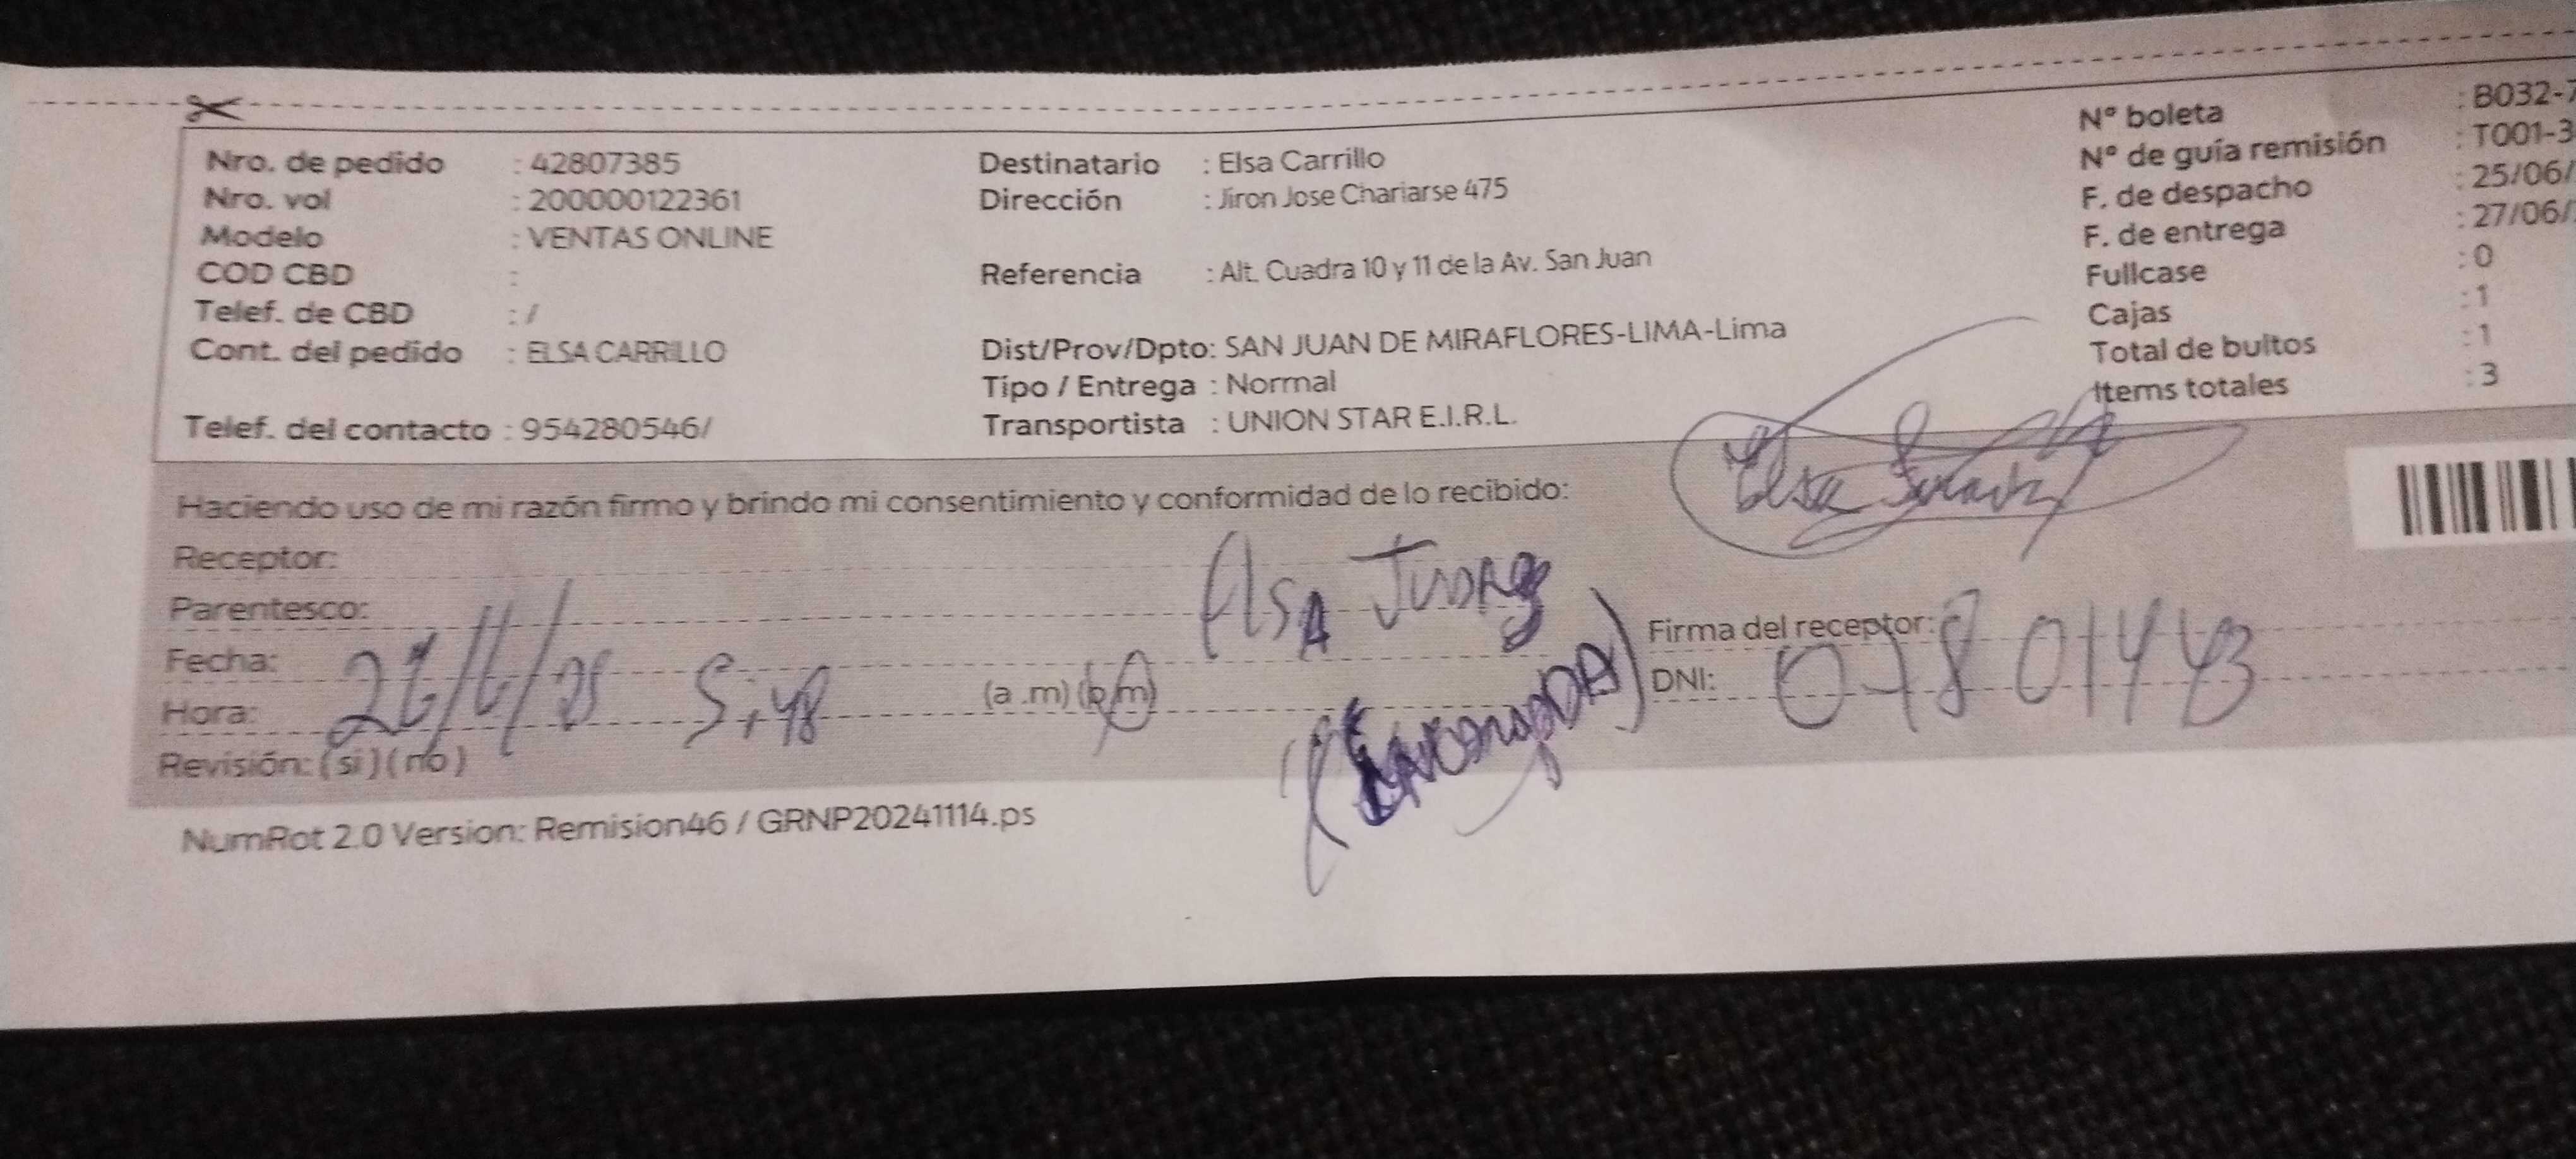 Nro. de pedido : 42807385
Nro. vol : 200000122361
Modelo : VENTAS ONLINE
COD CBD :
Telef. de CBD : /
Cont. del pedido : ELSA CARRILLO
Telef. del contacto : 954280546/
Destinatario : Elsa Carrillo
Dirección : Jiron Jose Chariarse 475
Referencia : Alt. Cuadra 10 y 11 de la Av. San Juan
Dist/Prov/Dpto: SAN JUAN DE MIRAFLORES-LIMA-Lima
Tipo / Entrega : Normal
Transportista : UNION STAR E.I.R.L.
N° boleta : B032-7
N° de guía remisión : T001-3
F. de despacho : 25/06/
F. de entrega : 27/06/
Fullcase : 0
Cajas : 1
Total de bultos : 1
Items totales : 3
Haciendo uso de mi razón firmo y brindo mi consentimiento y conformidad de lo recibido:
Receptor:
Elsa
Parentesco:
(Encargada)
Fecha:
Hora: 5:48 (a .m) (p.m)
Revisión: (si) (no)
Firma del receptor:
DNI: 07801443
NumRot 2.0 Version: Remision46 / GRNP20241114.ps